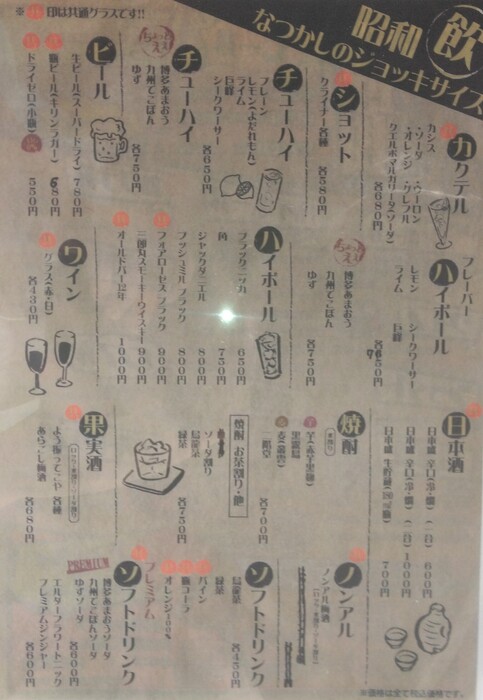 ※ 印は共通グラスです!!
昭和
飲
なつかしのジョッキサイズ
カクテル
カシス
・ソーダ ・ウーロン
・オレンジ ・グレフル
クエルボマルガリータ(ソーダ)
各680円
ショット
クライナー各種
各580円
チューハイ
プレーン
レモン(よだれもん)
ライム
巨峰
シークワーサー
各650円
チューハイ
ちょっとええ
博多あまおう
九州でこぽん
ゆず
各750円
ビール
生ビール(スーパードライ) 780円
瓶ビール(キリンラガー) 680円
ドライゼロ(小瓶) 550円
フレーバー
ハイボール
レモン
ライム
シークワーサー
巨峰
ちょっとええ
博多あまおう
九州でこぽん
ゆず
各750円
ハイボール
ブラックニッカ 650円
角 750円
ジャックダニエル 800円
ブッシュミルブラック 800円
フォアローゼスブラック 900円
三郎丸スモーキーウイスキー 900円
オールドパー12年 1000円
ワイン
グラス(赤・白)
各430円
日本酒
日本盛 辛口(冷・燗) (一合) 600円
日本盛 辛口(冷・燗) (二合) 1000円
日本盛 生貯蔵 700円
焼酎
黒霧島
二階堂
各700円
焼酎 お茶割り・他
ソーダ割り
烏龍茶
緑茶
各750円
果実酒
各種
あらごし梅酒
各680円
ノンアル
ノンアル梅酒
ソフトドリンク
烏龍茶
緑茶
パイン
瓶コーラ
オレンジ100%
各450円
ソフトドリンク
プレミアム
PREMIUM
博多あまおうソーダ
九州でこぽんソーダ
ゆずソーダ
各600円
エルダーフラワートニック
プレミアムジンジャー
各600円
※価格は全て税込価格です。